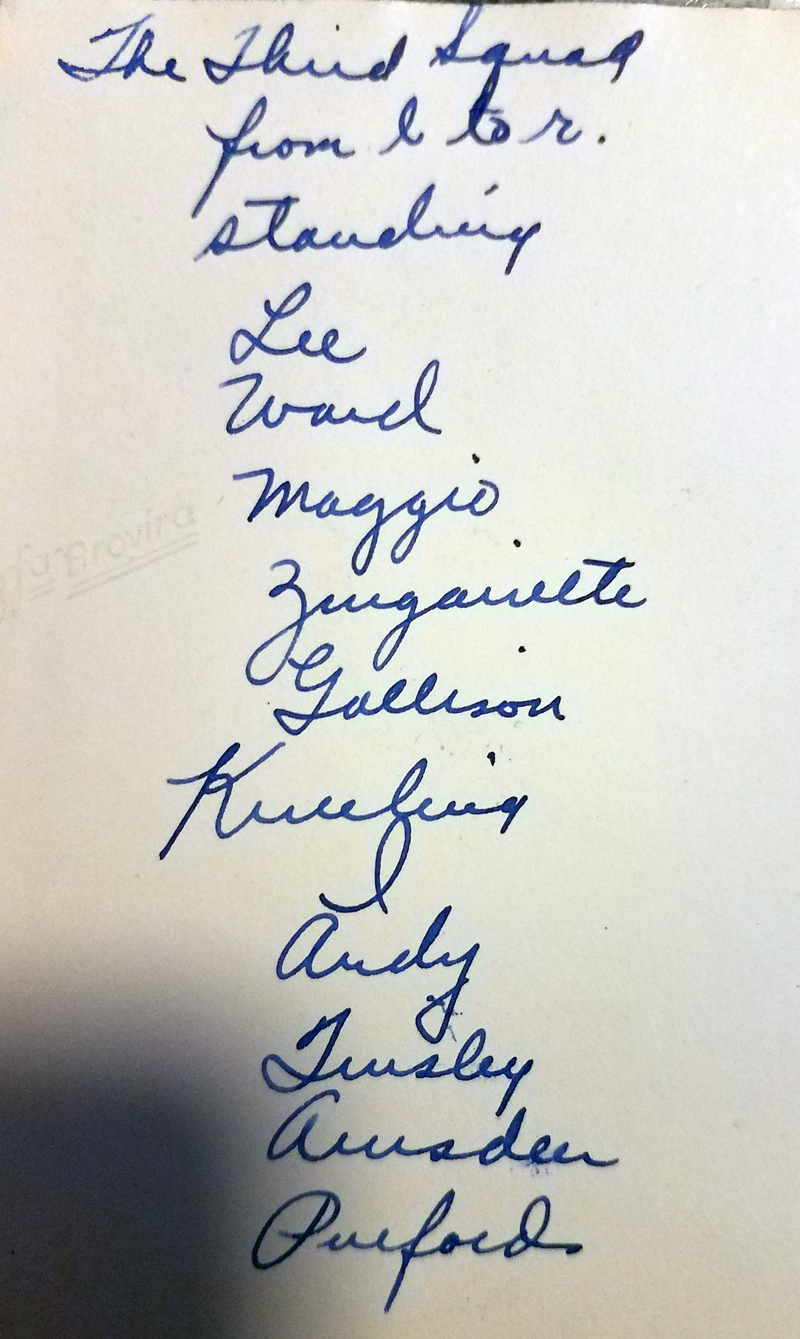 The Third Squad
from l to r.
standing
Lee
Ward
Maggio
Zingariette
Gallison
Kneeling
Andy
Tinsley
Amsden
Agfa Brovira